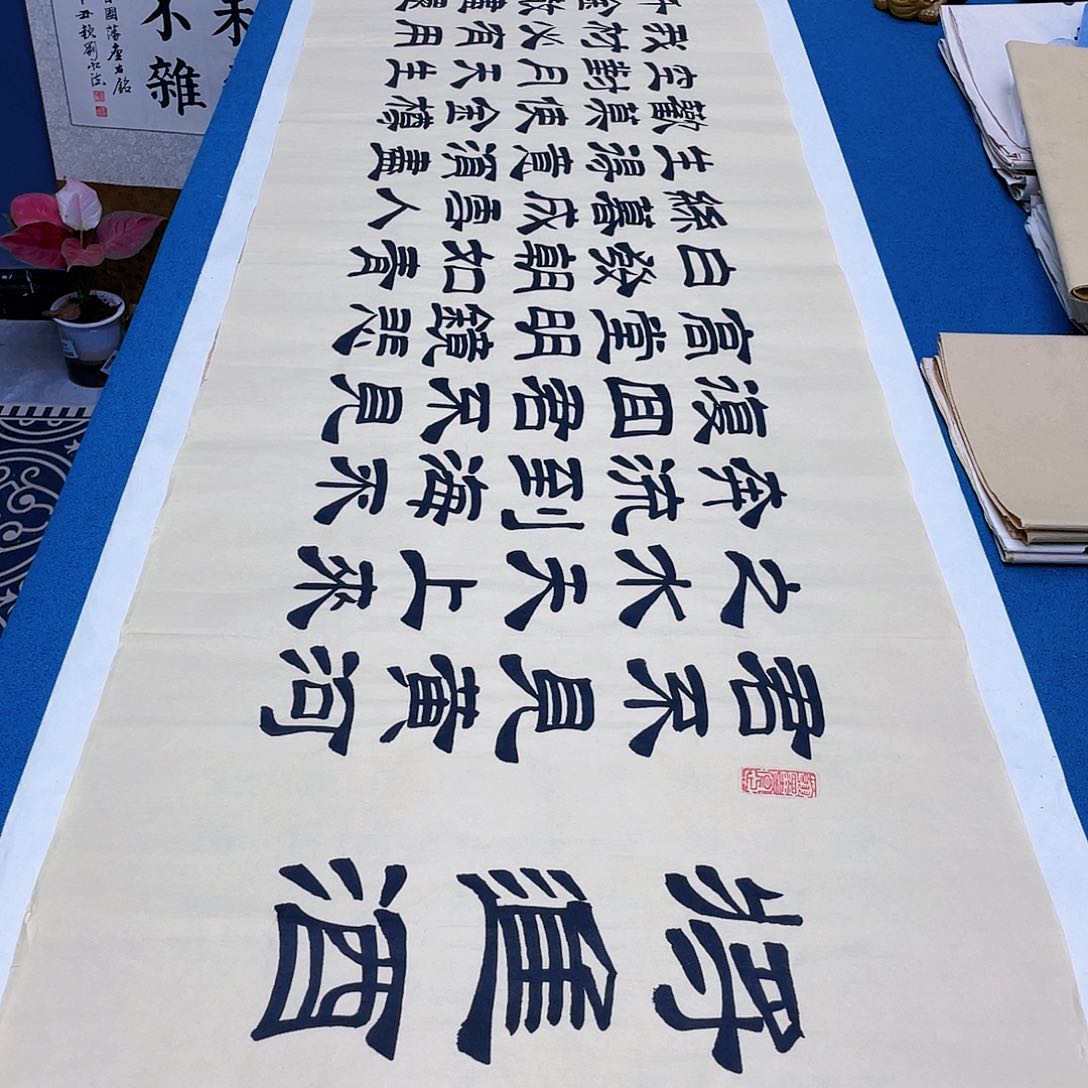 將進酒
君不見黃河
之水天上來
奔流到海不
復回君不見
高堂明鏡悲
白髮朝如青
絲暮成雪人
生得意須盡
歡莫使金樽
空對月天生
我材必有用
千金散盡還
不雜
國藩座右銘
丑秋劉